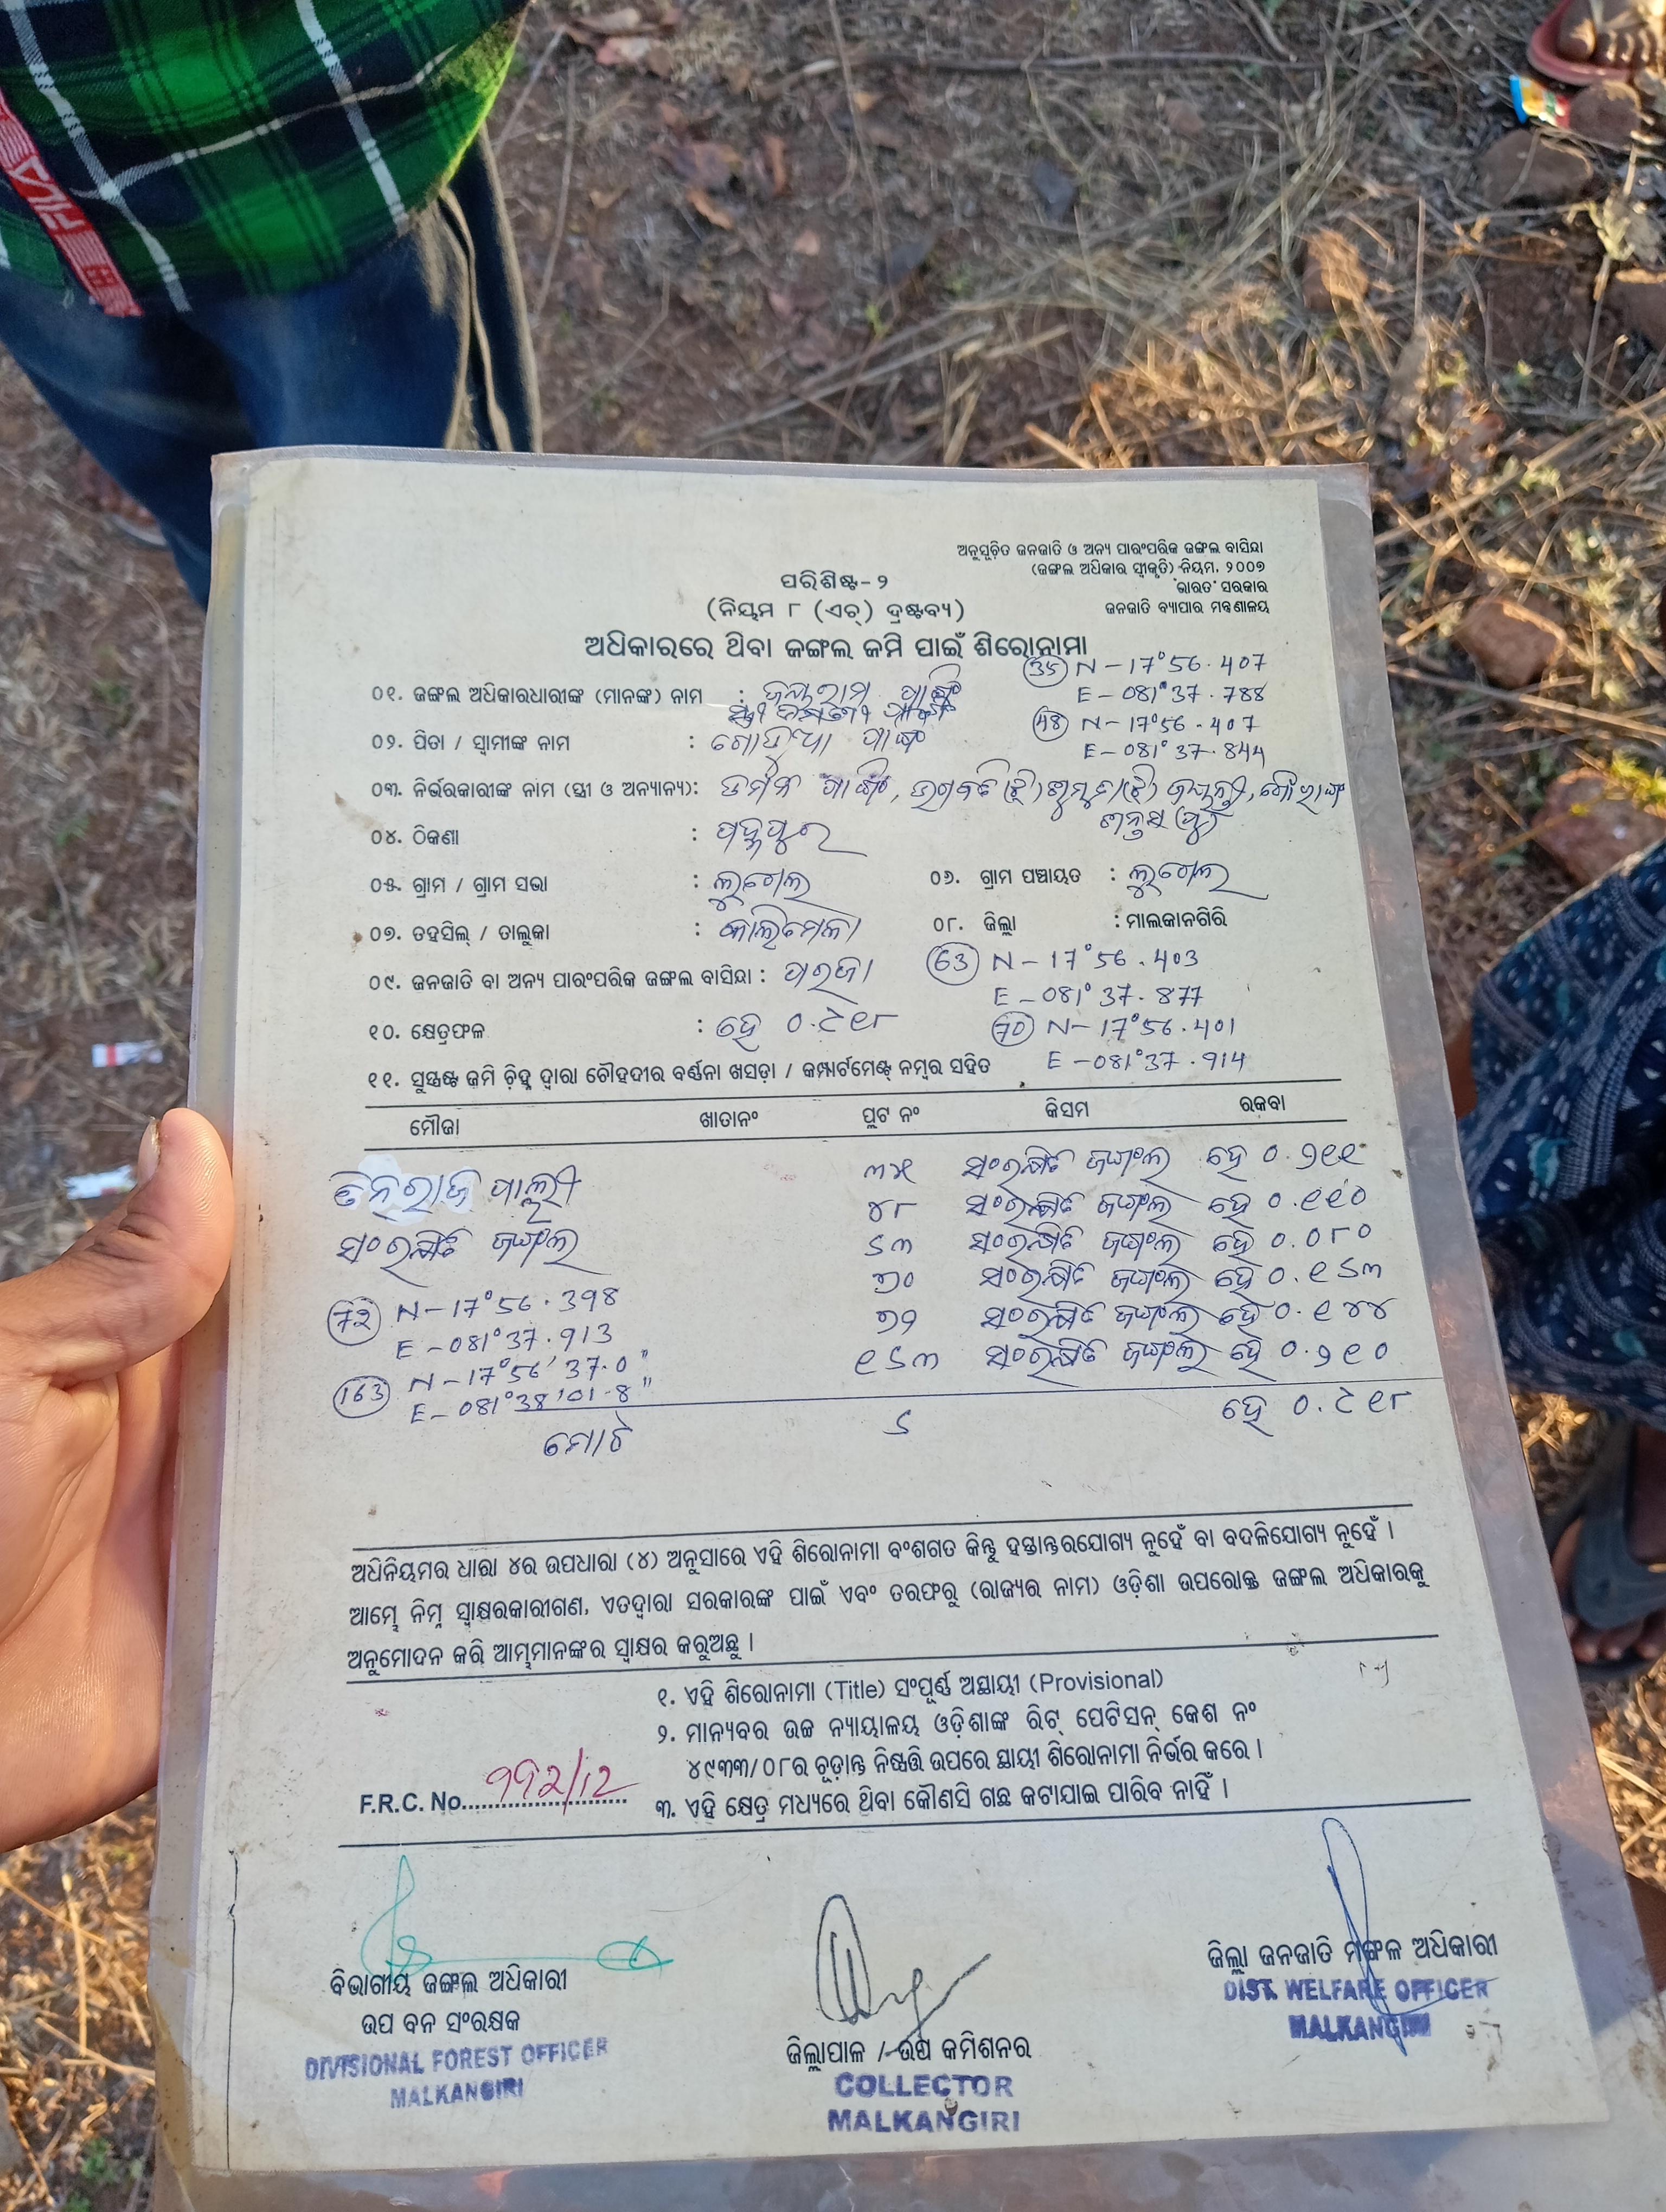 FILA
ଅନୁସୂଚିତ ଜନଜାତି ଓ ଅନ୍ୟ ପାରଂପରିକ ଜଙ୍ଗଲ ବାସିନ୍ଦା
(ଜଙ୍ଗଲ ଅଧିକାର ସ୍ୱୀକୃତି) ନିୟମ, ୨୦୦୭
ଭାରତ ସରକାର
ଜନଜାତି ବ୍ୟାପାର ମନ୍ତ୍ରଣାଳୟ
ପରିଶିଷ୍ଟ-୨
(ନିୟମ ୮ (ଏଚ୍) ଦ୍ରଷ୍ଟବ୍ୟ)
ଅଧିକାରରେ ଥିବା ଜଙ୍ଗଲ ଜମି ପାଇଁ ଶିରୋନାମା
35 N - 17°56.407
E - 081°37.788
48 N - 17°56.407
E - 081°37.844
୦୧. ଜଙ୍ଗଲ ଅଧିକାରଧାରୀଙ୍କ (ମାନଙ୍କ) ନାମ :
୦୨. ପିତା / ସ୍ୱାମୀଙ୍କ ନାମ :
୦୩. ନିର୍ଭରକାରୀଙ୍କ ନାମ (ସ୍ତ୍ରୀ ଓ ଅନ୍ୟାନ୍ୟ):
୦୪. ଠିକଣା : ପଦ୍ମପୁର
୦୫. ଗ୍ରାମ / ଗ୍ରାମ ସଭା : ଲୁଗେଲ ୦୬. ଗ୍ରାମ ପଞ୍ଚାୟତ : ଲୁଗେଲ
୦୭. ତହସିଲ୍ / ତାଲୁକା : କାଲିମେଳା ୦୮. ଜିଲ୍ଲା : ମାଲକାନଗିରି
୦୯. ଜନଜାତି ବା ଅନ୍ୟ ପାରଂପରିକ ଜଙ୍ଗଲ ବାସିନ୍ଦା : ପରଜା
63 N - 17°56.403
E - 081°37.877
୧୦. କ୍ଷେତ୍ରଫଳ : ହେ ୦.୯୧୮
70 N - 17°56.401
E - 081°37.914
୧୧. ସୁସ୍ପଷ୍ଟ ଜମି ଚିହ୍ନ ଦ୍ୱାରା ଚୌହଦୀର ବର୍ଣ୍ଣନା ଖସଡ଼ା / କମ୍ପାର୍ଟମେଣ୍ଟ୍ ନମ୍ବର ସହିତ
ମୌଜା ଖାତାନଂ ପ୍ଲଟ ନଂ କିସମ ରକବା
୩୫ ସଂରକ୍ଷିତ ଜଙ୍ଗଲ ହେ ୦.୨୧୧
୪୮ ସଂରକ୍ଷିତ ଜଙ୍ଗଲ ହେ ୦.୧୧୦
ସଂରକ୍ଷିତ ଜଙ୍ଗଲ ୬୩ ସଂରକ୍ଷିତ ଜଙ୍ଗଲ ହେ ୦.୦୮୦
୭୦ ସଂରକ୍ଷିତ ଜଙ୍ଗଲ ହେ ୦.୧୬୩
୭୨ ସଂରକ୍ଷିତ ଜଙ୍ଗଲ ହେ ୦.୧୪୪
୧୬୩ ସଂରକ୍ଷିତ ଜଙ୍ଗଲ ହେ ୦.୨୧୦
72 N - 17°56.398
E - 081°37.913
163 N - 17°56'37.0"
E - 081°38'01.8"
ମୋଟ ୬ ହେ ୦.୯୧୮
ଅଧିନିୟମର ଧାରା ୪ର ଉପଧାରା (୪) ଅନୁସାରେ ଏହି ଶିରୋନାମା ବଂଶଗତ କିନ୍ତୁ ହସ୍ତାନ୍ତରଯୋଗ୍ୟ ନୁହେଁ ବା ବଦଳିଯୋଗ୍ୟ ନୁହେଁ ।
ଆମ୍ଭେ ନିମ୍ନ ସ୍ୱାକ୍ଷରକାରୀଗଣ, ଏତଦ୍ୱାରା ସରକାରଙ୍କ ପାଇଁ ଏବଂ ତରଫରୁ (ରାଜ୍ୟର ନାମ) ଓଡ଼ିଶା ଉପରୋକ୍ତ ଜଙ୍ଗଲ ଅଧିକାରକୁ
ଅନୁମୋଦନ କରି ଆମ୍ଭମାନଙ୍କର ସ୍ୱାକ୍ଷର କରୁଅଛୁ ।
୧. ଏହି ଶିରୋନାମା (Title) ସଂପୂର୍ଣ୍ଣ ଅସ୍ଥାୟୀ (Provisional)
୨. ମାନ୍ୟବର ଉଚ୍ଚ ନ୍ୟାୟାଳୟ ଓଡ଼ିଶାଙ୍କ ରିଟ୍ ପେଟିସନ୍ କେଶ ନଂ
୪୯୩୩/୦୮ର ଚୂଡ଼ାନ୍ତ ନିଷ୍ପତ୍ତି ଉପରେ ସ୍ଥାୟୀ ଶିରୋନାମା ନିର୍ଭର କରେ ।
୩. ଏହି କ୍ଷେତ୍ର ମଧ୍ୟରେ ଥିବା କୌଣସି ଗଛ କଟାଯାଇ ପାରିବ ନାହିଁ ।
F.R.C. No.
ବିଭାଗୀୟ ଜଙ୍ଗଲ ଅଧିକାରୀ
ଉପ ବନ ସଂରକ୍ଷକ
DIVISIONAL FOREST OFFICER
MALKANGIRI
ଜିଲ୍ଲାପାଳ / ଉପ କମିଶନର
COLLECTOR
MALKANGIRI
ଜିଲ୍ଲା ଜନଜାତି ମଙ୍ଗଳ ଅଧିକାରୀ
DIST. WELFARE OFFICER
MALKANGIRI